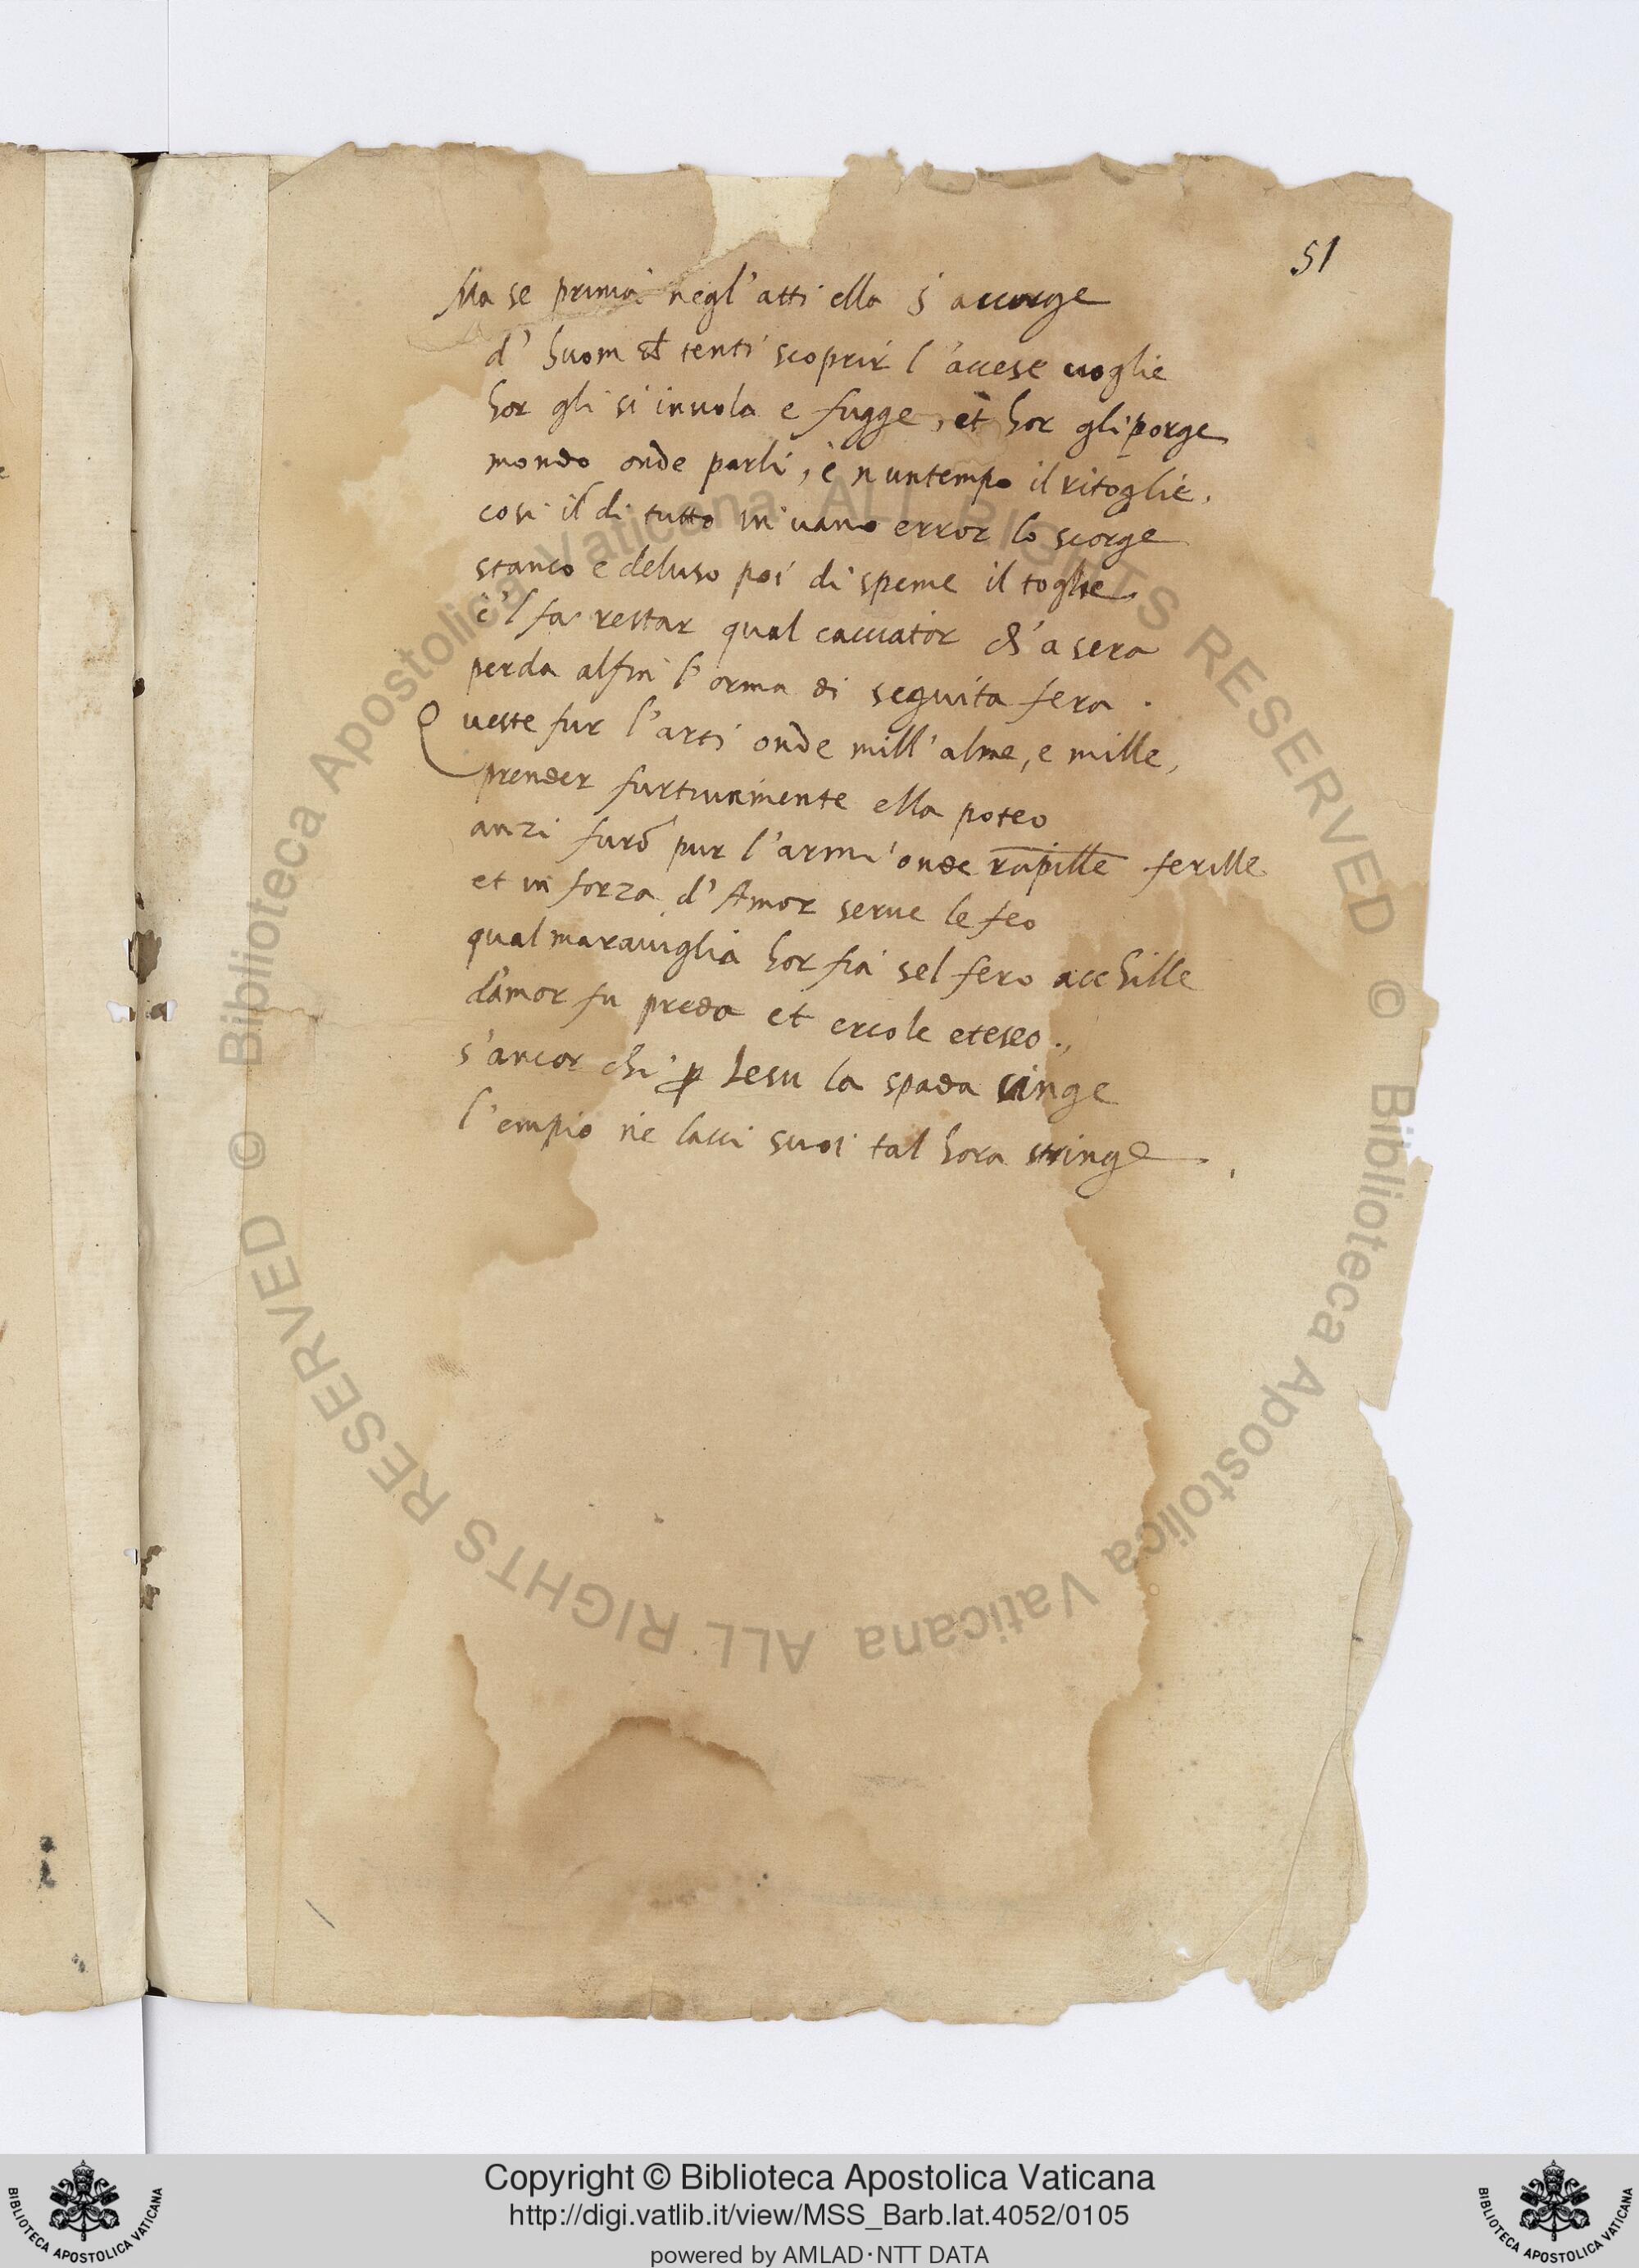 51
Ma se prima negl'atti ella s'accorge
d'huom ch tenti scoprir l'accese uoglie
hor gli si inuola e fugge, et hor gli porge
mondo onde parli, e n untempo il ritoglie.
cosi il di tutto in uano error lo scorge
stanco e deluso poi di speme il toglie.
e'l fa restar qual cacciator ch'a sera
perda alfin l'orma di seguita fera.
Queste fur l'arti onde mill'alme, e mille,
prender furtiuamente ella poteo
anzi furō pur l'armi onde rapille ferille
et in forza d'Amor serue le feo
qual marauiglia hor fia sel fero acchille
d'amor fu preda et ercole eteseo.,
s'ancor chi p Iesu la spada cinge
l'empio ne lacci suoi tal hora stringe.
© Biblioteca Apostolica Vaticana ALL RIGHTS RESERVED © Biblioteca Apostolica Vaticana ALL RIGHTS RESERVED
Copyright © Biblioteca Apostolica Vaticana
http://digi.vatlib.it/view/MSS_Barb.lat.4052/0105
powered by AMLAD·NTT DATA
BIBLIOTECA APOSTOLICA VATICANA
BIBLIOTECA APOSTOLICA VATICANA